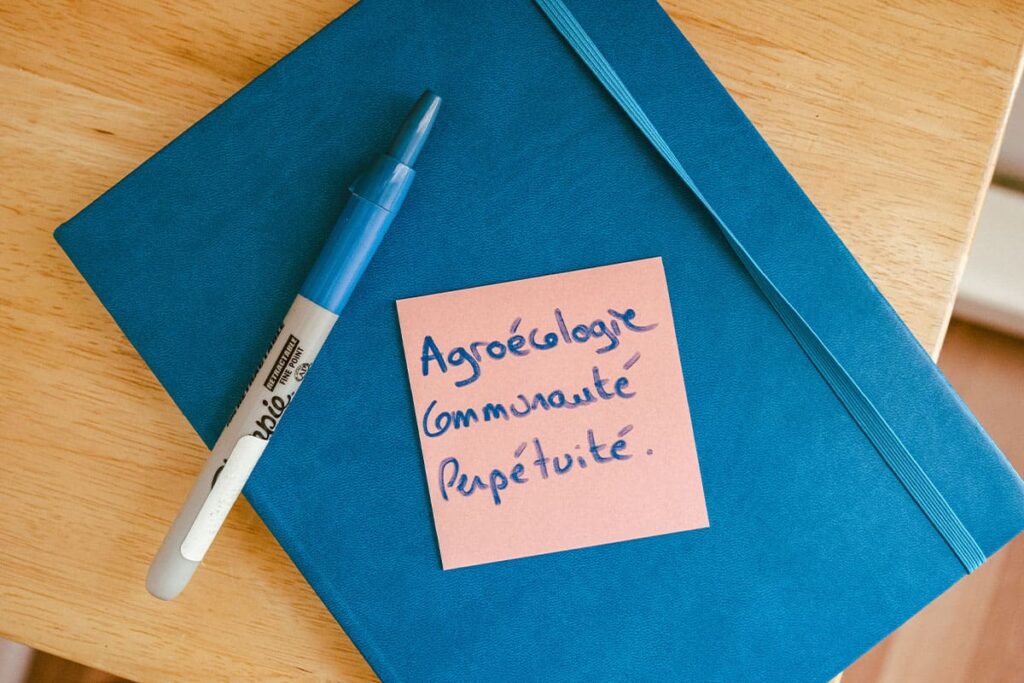 Agroécologie
Communauté
Perpétuité.
RETRACTABLE
FINE POINT